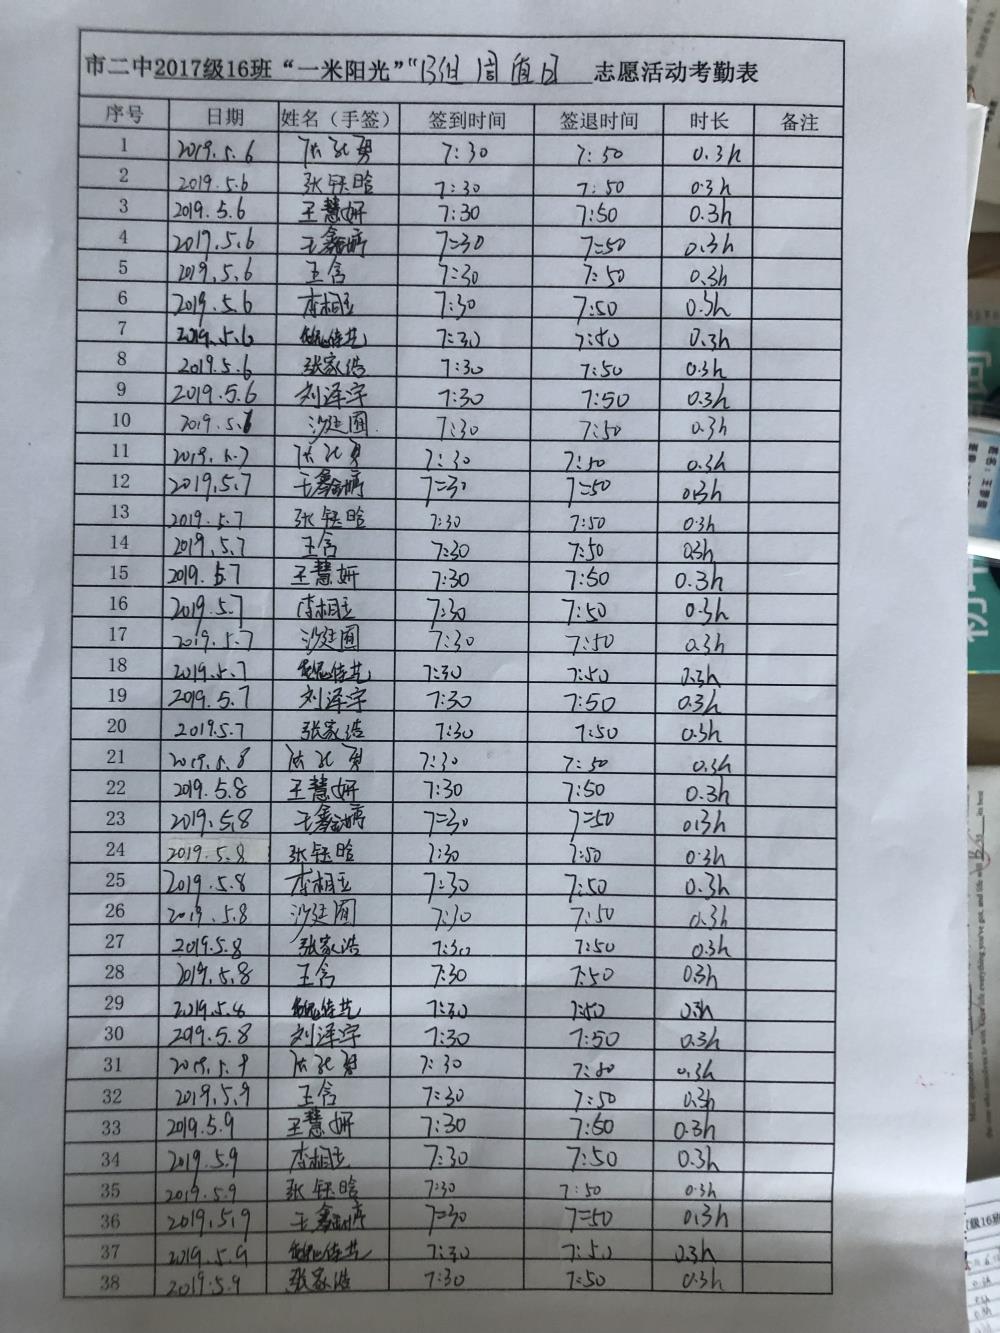 市二中2017级16班“一米阳光”“B组周值日 志愿活动考勤表
序号 日期 姓名（手签） 签到时间 签退时间 时长 备注
1 2019.5.6 7:30 7:50 0.3h
2 2019.5.6 张钰晗 7:30 7:50 0.3h
3 2019.5.6 王慧妍 7:30 7:50 0.3h
4 2019.5.6 王鑫婷 7=30 7=50 0.3h
5 2019.5.6 王含 7:30 7:50 0.3h
6 2019.5.6 李相立 7:30 7:50 0.3h
7 2019.5.6 7:30 7:50 0.3h
8 2019.5.6 张家浩 7:30 7:50 0.3h
9 2019.5.6 刘泽宇 7:30 7:50 0.3h
10 2019.5.6 沙廷圃 7:30 7:50 0.3h
11 2019.5.7 7:30 7:50 0.3h
12 2019.5.7 王鑫婷 7=30 7=50 0.3h
13 2019.5.7 张钰晗 7:30 7:50 0.3h
14 2019.5.7 王含 7:30 7:50 0.3h
15 2019.5.7 王慧妍 7:30 7:50 0.3h
16 2019.5.7 李相立 7:30 7:50 0.3h
17 2019.5.7 沙廷圃 7:30 7:50 0.3h
18 2019.5.7 7:30 7:50 0.3h
19 2019.5.7 刘泽宇 7:30 7:50 0.3h
20 2019.5.7 张家浩 7:30 7:50 0.3h
21 2019.5.8 7:30 7:50 0.3h
22 2019.5.8 王慧妍 7:30 7:50 0.3h
23 2019.5.8 王鑫婷 7=30 7=50 0.3h
24 2019.5.8 张钰晗 7:30 7:50 0.3h
25 2019.5.8 李相立 7:30 7:50 0.3h
26 2019.5.8 沙廷圃 7:30 7:50 0.3h
27 2019.5.8 张家浩 7:30 7:50 0.3h
28 2019.5.8 王含 7:30 7:50 0.3h
29 2019.5.8 7:30 7:50 0.3h
30 2019.5.8 刘泽宇 7:30 7:50 0.3h
31 2019.5.9 7:30 7:50 0.3h
32 2019.5.9 王含 7:30 7:50 0.3h
33 2019.5.9 王慧妍 7:30 7:50 0.3h
34 2019.5.9 李相立 7:30 7:50 0.3h
35 2019.5.9 张钰晗 7:30 7:50 0.3h
36 2019.5.9 王鑫婷 7=30 7=50 0.3h
37 2019.5.9 7:30 7:50 0.3h
38 2019.5.9 张家浩 7:30 7:50 0.3h